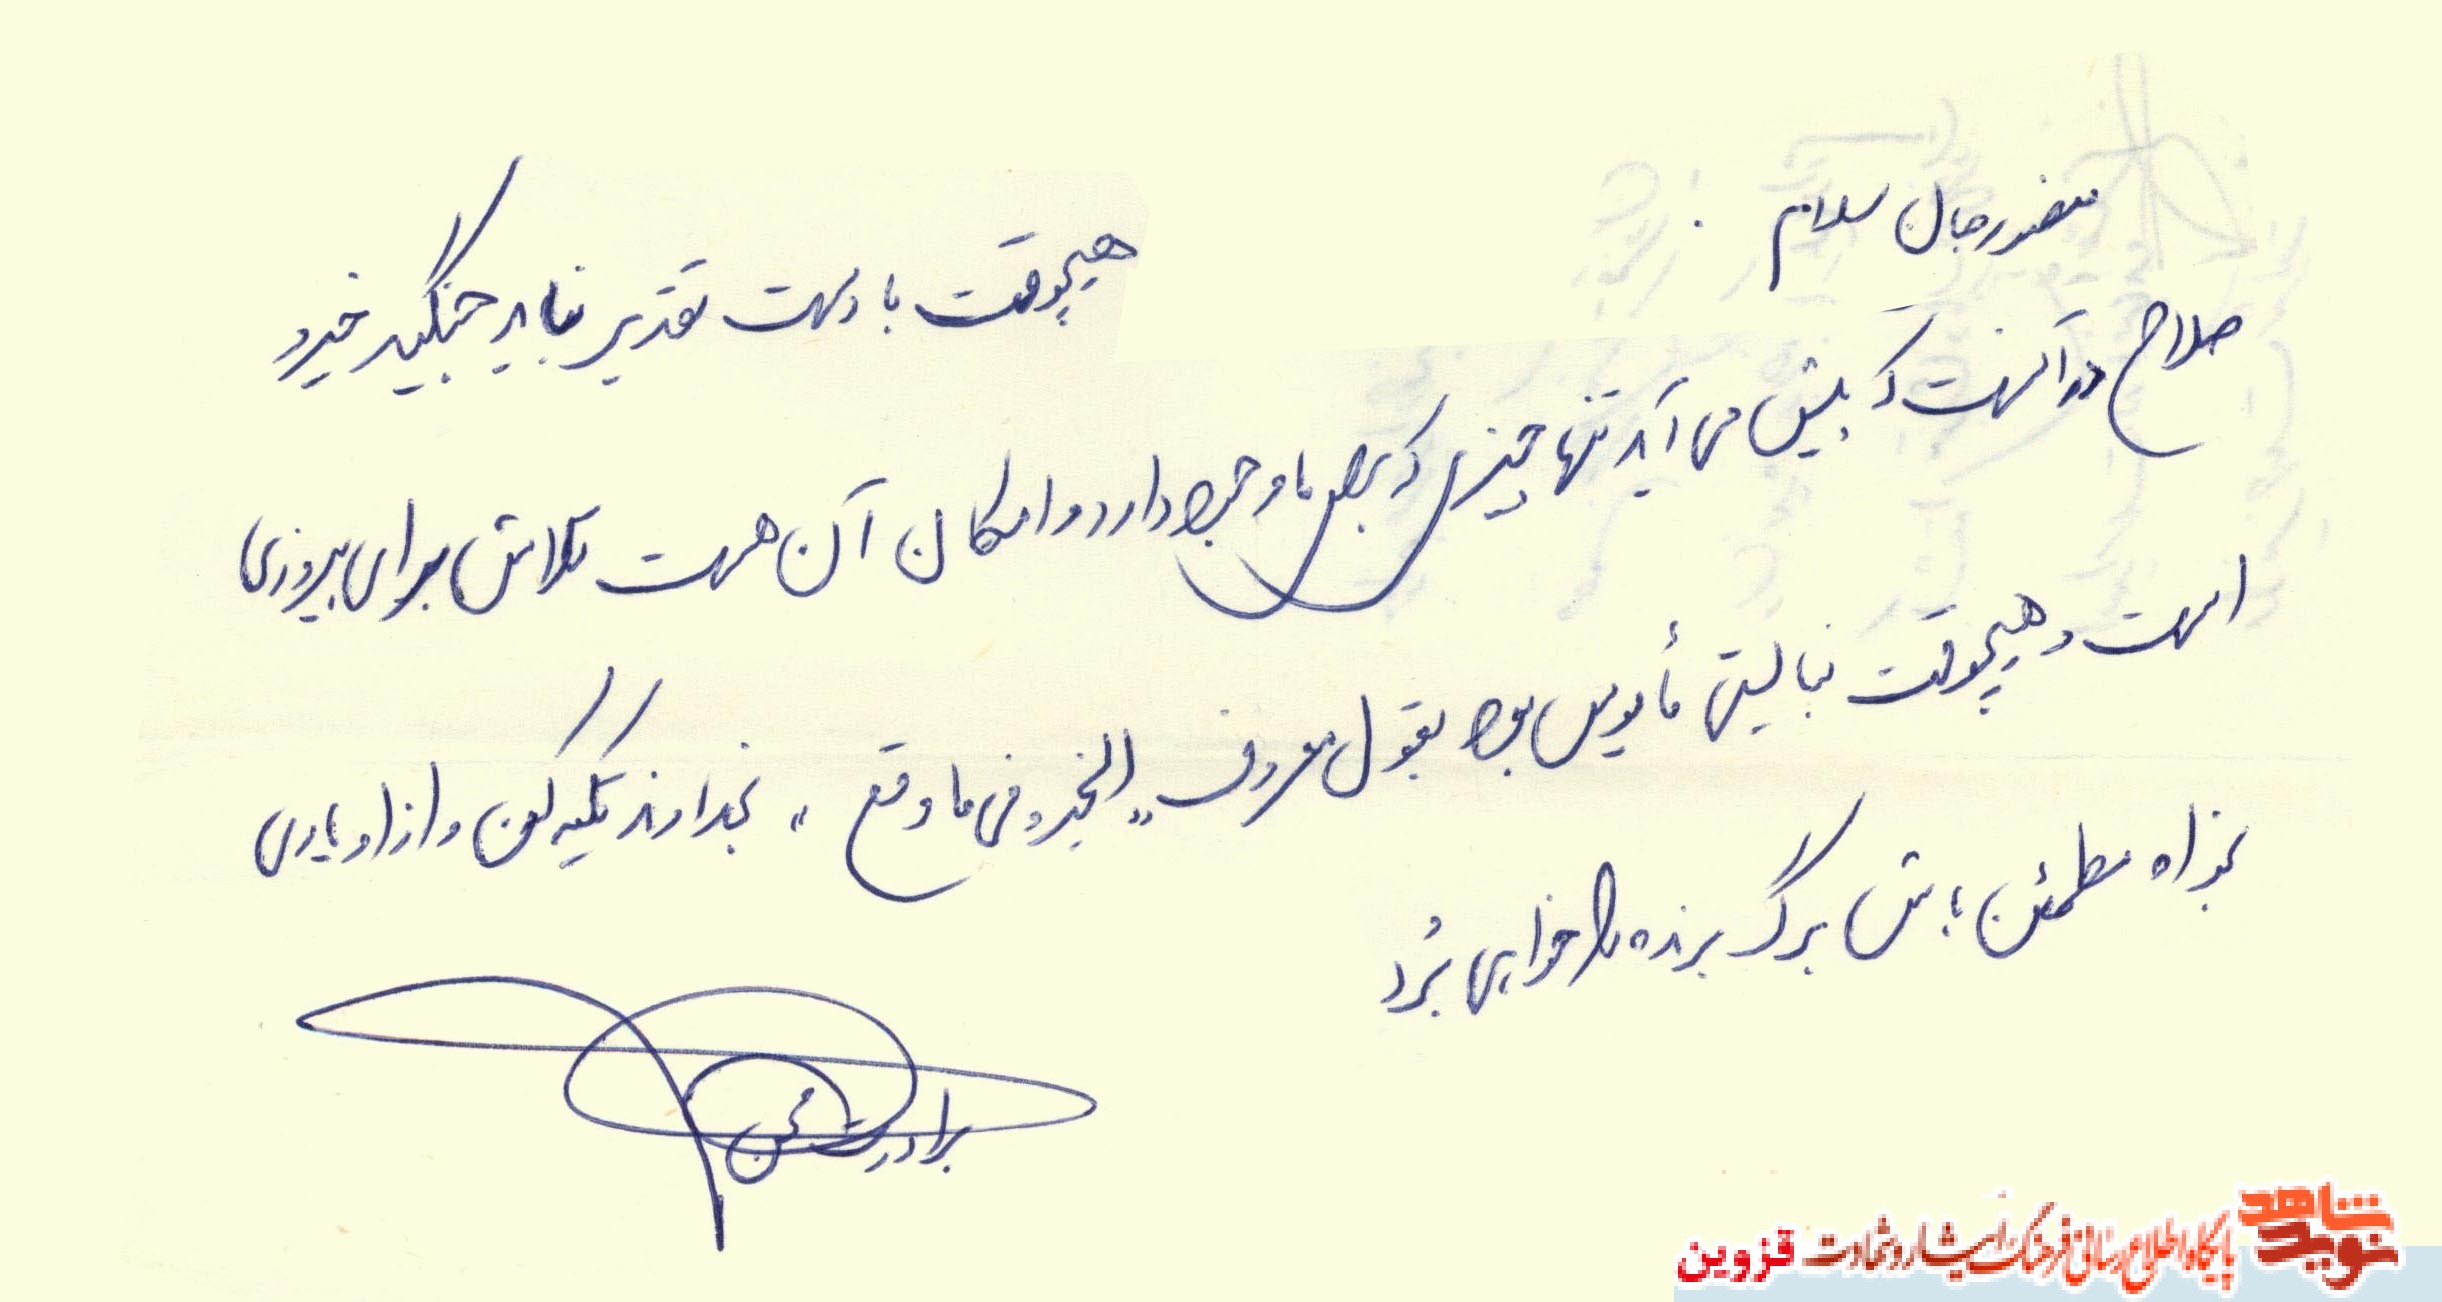 منصور جان سلام .
هیچوقت با دست تقدیر نباید جنگید خیر و
صلاح در آنست که پیش می آید تنها چیزی که برای ما وجود دارد و امکان آن هست تلاش برای پیروزی
است و هیچوقت نبایستی مأیوس بود بقول معروف „الخیر و فی ما وقع" بخداوند تکیه کن و از او یاری
بخواه مطمئن باش برگ برنده را خواهی بُرد
برادرت محسن
نوید شاهد
پایگاه اطلاع رسانی فرهنگ ایثار و شهادت قزوین